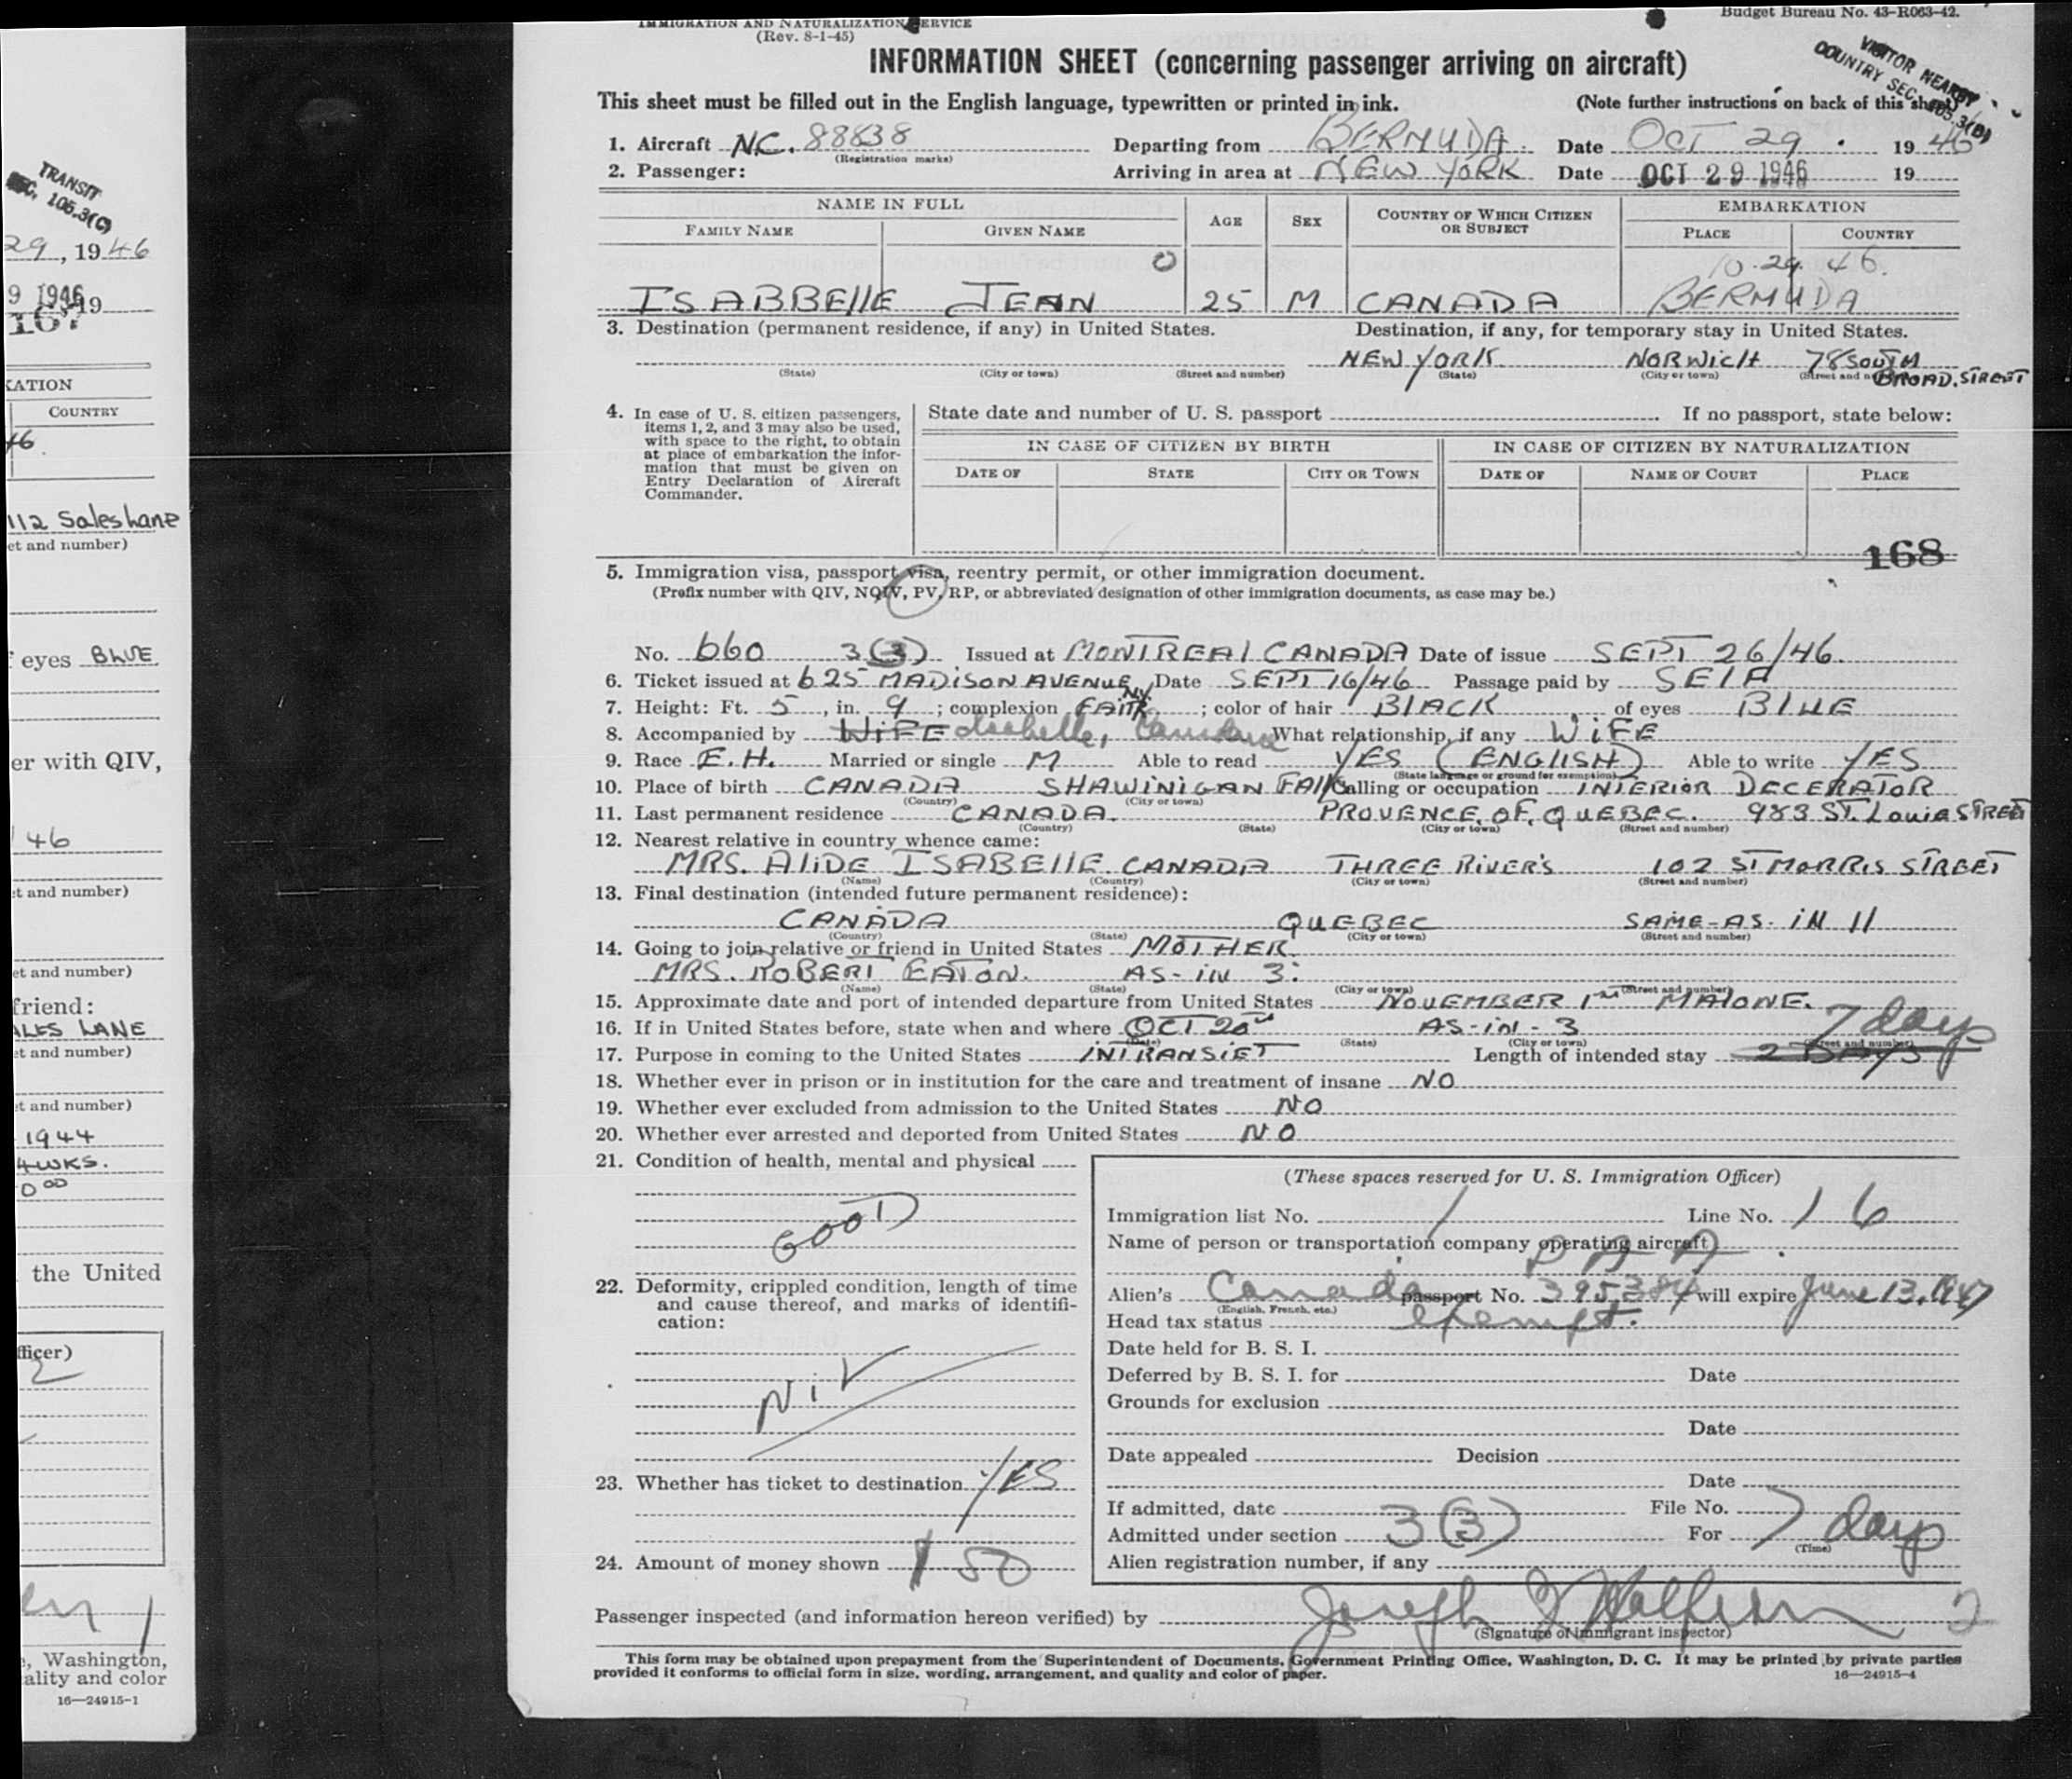 TRANSIT
SEC. 105.3(C)
29, 1946
9 1946 19
167
KATION
COUNTRY
46.
112 Sales Lane
et and number)
f eyes BLUE
er with QIV,
46
et and number)
et and number)
friend:
ALES LANE
et and number)
et and number)
1944
4 WKS.
0 00
the United
fficer)
2
, Washington,
ality and color
16—24915-1
IMMIGRATION AND NATURALIZATION SERVICE
(Rev. 8-1-45)
Budget Bureau No. 43-R063-42.
VISITOR NEARBY
COUNTRY SEC. 105.3(B)
INFORMATION SHEET (concerning passenger arriving on aircraft)
This sheet must be filled out in the English language, typewritten or printed in ink. (Note further instructions on back of this sheet)
1. Aircraft N.C. 88838 Departing from BERMUDA Date OCT 29 1946
(Registration marks)
2. Passenger: Arriving in area at NEW YORK Date OCT 29 1946 19
NAME IN FULL AGE SEX COUNTRY OF WHICH CITIZEN OR SUBJECT EMBARKATION
FAMILY NAME GIVEN NAME PLACE COUNTRY
0 10.29.46.
ISABBEllE JEAN 25 M CANADA BERMUDA
3. Destination (permanent residence, if any) in United States. Destination, if any, for temporary stay in United States.
NEW YORK NORWICH 78 SOUTH
(State) (City or town) (Street and number) (State) (City or town) (Street and number) BROAD. STREET
4. In case of U. S. citizen passengers, items 1, 2, and 3 may also be used, with space to the right, to obtain at place of embarkation the information that must be given on Entry Declaration of Aircraft Commander.
State date and number of U. S. passport If no passport, state below:
IN CASE OF CITIZEN BY BIRTH IN CASE OF CITIZEN BY NATURALIZATION
DATE OF STATE CITY OR TOWN DATE OF NAME OF COURT PLACE
168
5. Immigration visa, passport visa, reentry permit, or other immigration document.
(Prefix number with QIV, NQIV, PV, RP, or abbreviated designation of other immigration documents, as case may be.)
No. 660 3(3) Issued at MONTREAl CANADA Date of issue SEPT 26/46.
6. Ticket issued at 625 MADISON AVENUE NY Date SEPT 16/46 Passage paid by SElF
7. Height: Ft. 5, in. 9; complexion FAIR; color of hair BlACK of eyes BlUE
8. Accompanied by WIFE Isabelle, What relationship, if any WIFE
9. Race E.H. Married or single M Able to read YES (ENGLISH) Able to write YES
(State language or ground for exemption)
10. Place of birth CANADA SHAWINIGAN FAlls Calling or occupation INTERIOR DECERATOR
(Country) (City or town)
11. Last permanent residence CANADA. PROVENCE. OF. QUEBEC. 983 ST. Louis STREET
(Country) (State) (City or town) (Street and number)
12. Nearest relative in country whence came:
MRS. AliDE ISABEllE CANADA THREE RIVER'S 102 ST MORRIS STREET
(Name) (Country) (City or town) (Street and number)
13. Final destination (intended future permanent residence):
CANADA QUEBEC SAME-AS-IN 11
(Country) (State) (City or town) (Street and number)
14. Going to join relative or friend in United States MOTHER
MRS. ROBERT EATON. AS-IN 3.
(Name) (State) (City or town) (Street and number)
15. Approximate date and port of intended departure from United States NOVEMBER 1 MALONE.
16. If in United States before, state when and where OCT 20 AS-IN-3 7 days
(Date) (State) (City or town) (Street and number)
17. Purpose in coming to the United States INTRANSIET Length of intended stay 2 DAYS
18. Whether ever in prison or in institution for the care and treatment of insane NO
19. Whether ever excluded from admission to the United States NO
20. Whether ever arrested and deported from United States NO
21. Condition of health, mental and physical
GOOD
22. Deformity, crippled condition, length of time and cause thereof, and marks of identification:
Nil
23. Whether has ticket to destination YES
24. Amount of money shown $ 50
(These spaces reserved for U. S. Immigration Officer)
Immigration list No. 1 Line No. 16
Name of person or transportation company operating aircraft P A A
Alien's Canad passport No. 395384 will expire June 13, 1947
(English, French, etc.)
Head tax status exempt.
Date held for B. S. I.
Deferred by B. S. I. for Date
Grounds for exclusion
Date
Date appealed Decision
Date
If admitted, date File No.
Admitted under section 3(3) For 7 days
(Time)
Alien registration number, if any
Passenger inspected (and information hereon verified) by Joseph 2
(Signature of immigrant inspector)
This form may be obtained upon prepayment from the Superintendent of Documents, Government Printing Office, Washington, D. C. It may be printed by private parties
provided it conforms to official form in size, wording, arrangement, and quality and color of paper. 16—24915-4